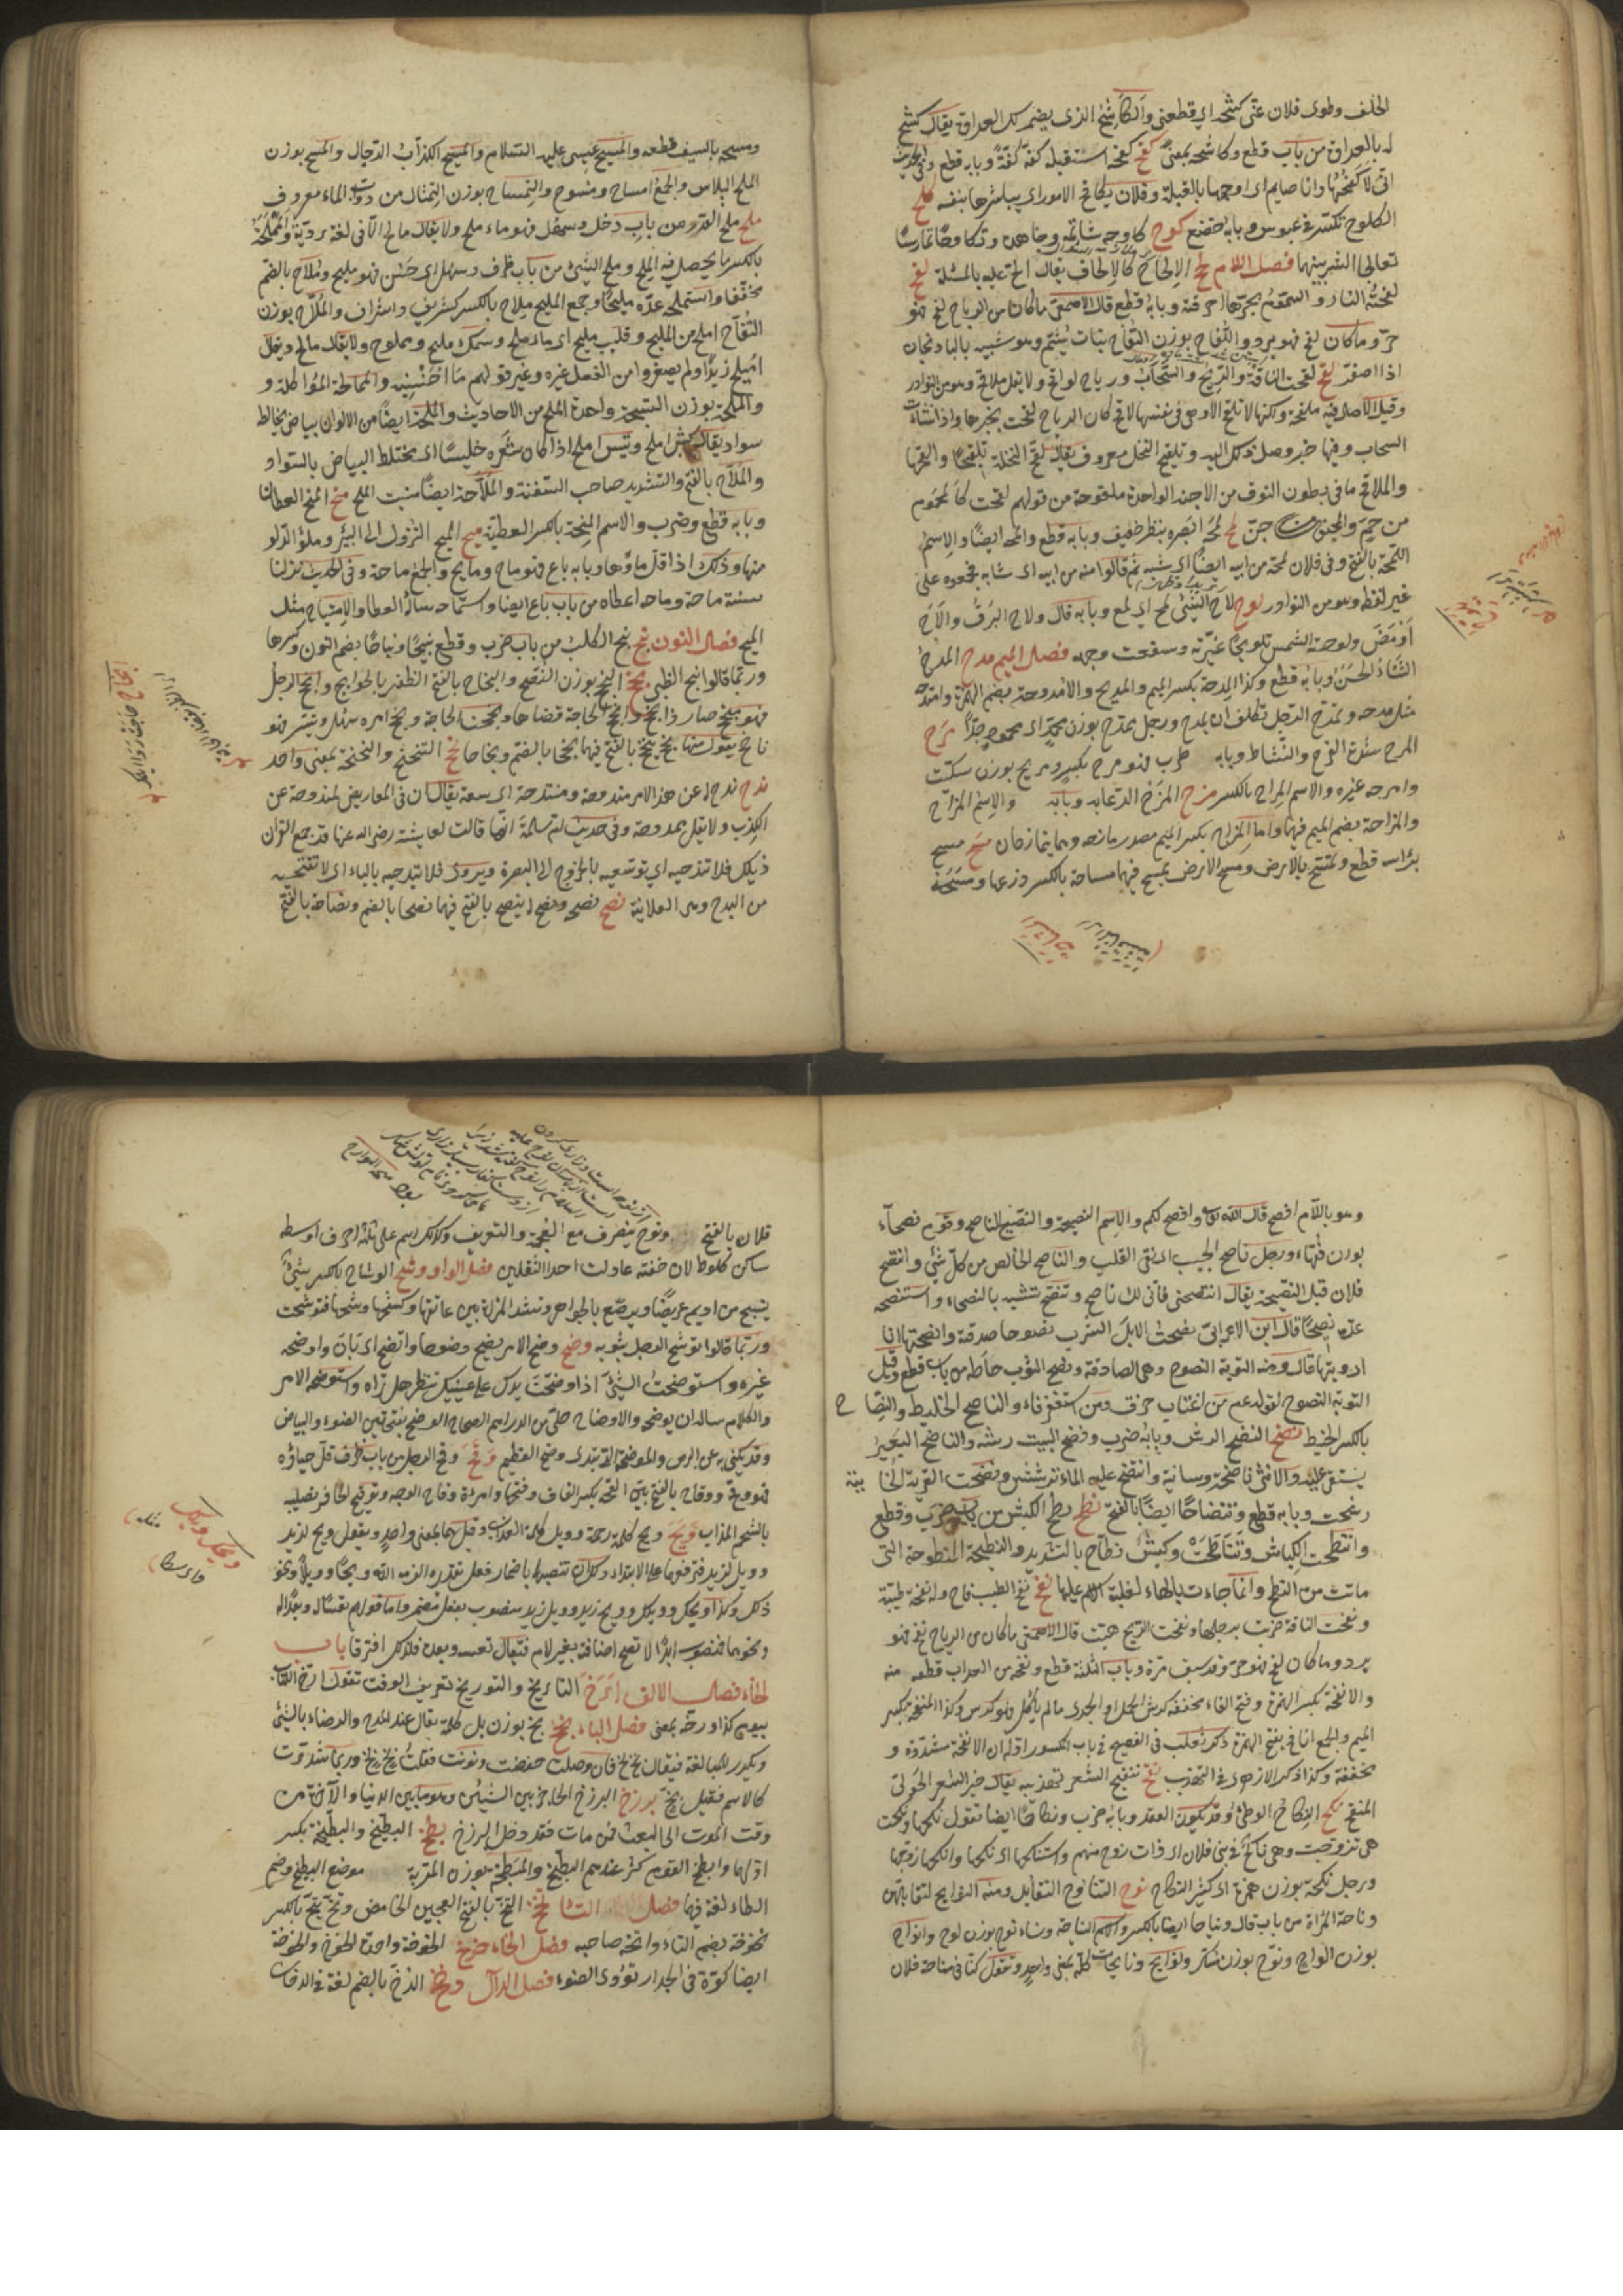 الخلف وطوى فلان عنى كشحه اى قطعنى والكاشح الذى يضمر لك العداوة يقال كشح
له بالعداوة من باب قطع وكاشحه بمعنى كفح كفحه استقبله كفة كفة وبابه قطع وفى الحديث
انى لاكفحها وانا صايم اى اوجهها بالقبلة وفلان يكافح الامور اى يباشرها بنفسه كلح
الكلوح تكشر فى عبوس وبابه خضع كوح كاوحه شاتمه وجاهده وتكاوحا تمارسا
تعالجا الشر بينهما فصل اللام لح الالحاح كالالحاف يقال الح عليه بالمسئلة لفح
لفحته النار والسموم بحرها احرقته وبابه قطع قال الاصمعى ماكان من الرياح لفح فهو
حر وماكان نفح فهو برد واللفاح بوزن التفاح نبات يشم وهو شبيه بالبادنجان
اذا اصفر لقح لقحت الناقة والريح والسحاب ورياح لواقح ولا يقل ملاقح وهو من النوادر
وقيل الاصل فيه ملقحة ولكنها لا تلقح الا وهى فى نفسها لاقح كان الرياح لقحت بخير فاذا انشأت
السحاب وفيها خير وصل ذلك اليه وتلقيح النخل معروف يقال لقح النخلة تلقيحا والقحها
والملاقح مافى بطون النوق من الاجنة الواحدة ملقوحة من قولهم لقحت كالمحموم
من حم والمجنون من جن لمح لمحه ابصره بنظر خفيف وبابه قطع والمحه ايضا والاسم
اللمحة بالفتح وفى فلان لمحة من ابيه ايضا اى شبه ثم قالوا منه من ابيه اى مشابه فجمعوه على
غير لفظه وهو من النوادر لوح لاح الشئ لمح اى لمع وبابه قال ولاح البرق والاح
اومض ولوحته الشمس تلويحا غيرته وسفعت وجهه فصل الميم مدح المدح
الثناء الحسن وبابه قطع وكذا المدحة بكسر الميم والمديح والامدوحة بضم الهمزة وامتدحه
مثل مدحه وتمدح الرجل تكلف ان يمدح ورجل ممدح بوزن محمد اى ممدوح جدا مرح
المرح شدة الفرح والنشاط وبابه طرب فهو مرح بكسر ومريح بوزن سكيت
وامرحه غيره والاسم المراح بالكسر مزح المزح الدعابه وبابه والاسم المزاح
والمزاحة بضم الميم فيهما واما المزاح بكسر الميم مصدر مازحه وهما يتمازحان مسح مسح
برأسه قطع وتمسح بالارض ومسح الارض يمسح فيهما مساحة بالكسر ذرعها ومسحه
ومسحه بالسيف قطعه والمسيح عيسى عليه السلام والمسيح الكذاب الدجال والمسح بوزن
الملح البلاس والجمع امساح ومسوح والتمساح بوزن التمثال من دواب الماء معروف
ملح ملح القدر من باب دخل وسمك فهو ماء ملح ولا يقال مالح الا فى لغة ردية والمملحة
بالكسر ما يجعل فيه الملح وملح الشئ من باب ظرف وسهل اى حسن فهو مليح وملاح بالضم
مخففا واستملحه عده مليحا وجمع المليح ملاح بالكسر كشريف واشراف والملاح بوزن
التفاح املح من المليح وقليب مليح اى ماؤه ملح وسمك مليح ومملوح ولا يقال مالح ويقال
اميلح زيدا ولم يصغروا من الفعل غيره وغير قولهم ما احيسنه والممالحة المؤاكلة و
والملحة بوزن السبحة واحدة الملح من الاحاديث والملحة ايضا من الالوان بياض يخالط
سواد يقال كبش املح وتيس املح اذا كان شعره خليسا اى مختلط البياض بالسواد
والملاح بالفتح والتشديد صاحب السفينة والملاحة ايضا منبت الملح منح المنح العطاء
وبابه قطع وضرب والاسم المنحة بالكسر العطية ميح الميح النزول الى البئر وملؤ الدلو
منها وذلك اذا قل ماؤها وبابه باع فهو ماح ومايح والجمع ماحة وفى الحديث نزلنا
ستة ماحة وماحه اعطاه من باب باع ايضا واستماحه سأله العطا والامتياح مثل
الميح فصل النون نبح نبح الكلب من باب ضرب وقطع نبيحا ونباحا بضم النون وكسرها
وربما قالوا نبح الظبى نجح النجح بوزن النصح والنجاح بالفتح الظفر بالحوايج وانجح الرجل
فهو منجح صار ذا نجح وانجح الحاجة قضاها ونجحت الحاجة ونجح امره سهل وتيسر فهو
ناجح يقول منها نجح ينجح بالفتح فيهما نجحا بالضم ونجاحا نحح التنحنح والنحنحة بمعنى واحد
ندح ندح له عن هذا الامر مندوحة ومنتدحة اى سعة يقال ان فى المعاريض لمندوحة عن
الكذب ولا يقل ممدوحة وفى حديث ام سلمة انها قالت لعايشة رضى الله عنها قد جمع القران
ذيلك فلا تندحيه اى توسعيه بالخروج الى البصرة ويروى فلا تبدحيه بالباء اى لا تفتحيه
من البدح وهى العلانية نصح نصحه ونصح له ينصح بالفتح فيهما نصحا بالضم ونصاحة بالفتح
وهو باللام افصح قال الله تعالى وانصح لكم والاسم النصيحة والنصيح الناصح وقوم نصحآء
بوزن فقهاء ورجل ناصح الجيب اى نقى القلب والناصح الخالص من كل شئ وانتصح
فلان قبل النصيحة يقال انتصحنى فانى لك ناصح وتنصح تشبه بالنصحاء واستنصحه
عده نصيحا قال ابن الاعرابى نصحت الابل الشرب نصوحا صدقته وانصحتها انا
ارويتها قال ومنه التوبة النصوح وهى الصادقة ونصح الثوب خاطه من باب قطع وقيل
التوبة النصوح لقوله عم من اغتاب خرق ومن استغفر رفاء والناصح الخليط والنصاح
بالكسر الخيط نضح النضح الرش وبابه ضرب ونضح البيت رشه والناضح البعير
يستقى عليه والانثى ناضحة وسانية وانتضح عليه الماء ترشش ونضحت القربة الخابية
رشحت وبابه قطع وتنضاحا ايضا بالفتح نطح نطح الكبش من باب ضرب وقطع
وانتطحت الكباش وتناطحت وكبش نطاح بالتشديد والنطيحة المنطوحة التى
ماتت من النطح وانما جاءت بالهاء لغلبة الاسم عليها نفح نفح الطيب فاح وله نفحة طيبة
ونفحت الناقة ضربت برجلها ونفحت الريح هبت قال الاصمعى ماكان من الرياح نفح فهو
برد وما كان لفح فهو حر وقد سبق مرة وباب الثلثة قطع ونفحه من العذاب قطعه منه
والانفحة بكسر الهمزة وفتح الفاء مخففة كرش الحمل او الجدى مالم يأكل فهو كرش وكذا المنفحة بكسر
الميم والجمع انافح بفتح الهمزة ذكر ثعلب فى الفصيح فى باب المكسور اوله ان الانفحة مشددة و
مخففة وكذا ذكر الازهرى فى التهذيب نقح تنقيح الشعر تهذيبه يقال خير الشعر الحولى
المنقح نكح النكاح الوطئ وقد يكون العقد وبابه ضرب ونكاحا ايضا تقول نكحها ونكحت
هى تزوجت وهى ناكح فى بنى فلان اى ذات زوج منهم واستنكحها اى نكحها وانكحها زوجها
ورجل نكحة بوزن همزة اى كثير النكاح نوح التناوح التقابل ومنه النوايح لتقابلهن
وناحة المرأة من باب قال ونياحا ايضا بالكسر والاسم النياحة ونساء نوح بوزن لوح وانواح
بوزن الواح ونوح بوزن سكر ونوايح ونايحات كله بمعنى واحد وتقول كنا فى مناحة فلان
فلان بالفتح ونوح ينصرف مع العجمة والتعريف وكذلك كل اسم على ثلثة احرف اوسطه
ساكن كلوط لان خفته عادلت احد الثقلين فصل الواو وشح الوشاح بالكسر شئ
ينسج من اديم عريضا ويرصع بالجواهر وتشده المرأة بين عاتقها وكشحها وشحها فتوشحت
وربما قالوا توشح الرجل بثوبه وضح وضح الامر يضح وضوحا واتضح اى بان واوضحه
غيره واستوضحت الشئ اذا وضعت يدك على عينيك تنظر هل تراه واستوضحه الامر
والكلام ساله ان يوضحه والاوضاح حلى من الدراهم الصحاح الوضح بفتحتين الضوء والبياض
وقد يكنى به عن البرص والموضحة التى تبدى وضح العظم وقح وقح الرجل من باب ظرف قل حياؤه
فهو وقح ووقاح بالفتح بين القحة بكسر القاف وفتحها وامرأة وقاح الوجه وتوقيح الحافر تصليبه
بالشحم المذاب ويح ويح كلمة رحمة وويل كلمة العذاب وقيل هما بمعنى واحد وتقول ويح لزيد
وويل لزيد فترفعهما على الابتداء ولك ان تنصبهما باضمار فعل تقديره الزمه الله ويحا وويلا ونحو
ذلك وكذا ويحك وويلك وويح زيد وويل زيد منصوب بفعل مضمر واما قولهم تعسا له وبعدا له
ونحوهما فمنصوب ابدا لا تصح اضافته بغير لام فيقال تعسه وبعده فلذلك افترقا باب
الخاء فصل الالف ارخ التاريخ والتوريخ تعريف الوقت تقول ارخ الكتاب
بيوم كذا وورخه بمعنى فصل الباء بخ بخ بوزن بل كلمة يقال عند المدح والرضاء بالشئ
ويكرر للمبالغة فيقال بخ بخ فان وصلت خفضت ونونت فقلت بخ بخ وربما شددت
كالاسم فقيل بخ برزخ البرزخ الحاجز بين الشيئين وهو مابين الدنيا والآخرة من
وقت الموت الى البعث فمن مات فقد دخل البرزخ بطخ البطيخ والبطيخة بكسر
اولهما وابطخ القوم كثر عندهم البطيخ والمبطخة بوزن المتربة موضع البطيخ وضم
الطاء لغة فيها فصل التا تخخ التخ بالفتح العجين الحامض وتخ يتخ بالكسر
تخوخة بضم التاء واتخه صاحبه فصل الخاء خوخ الخوخة واحدة الخوخ والخوخة
ايضا كوة فى الجدار تؤدى الضوء فصل الدال دخخ الدخ بالضم لغة فى الدخان